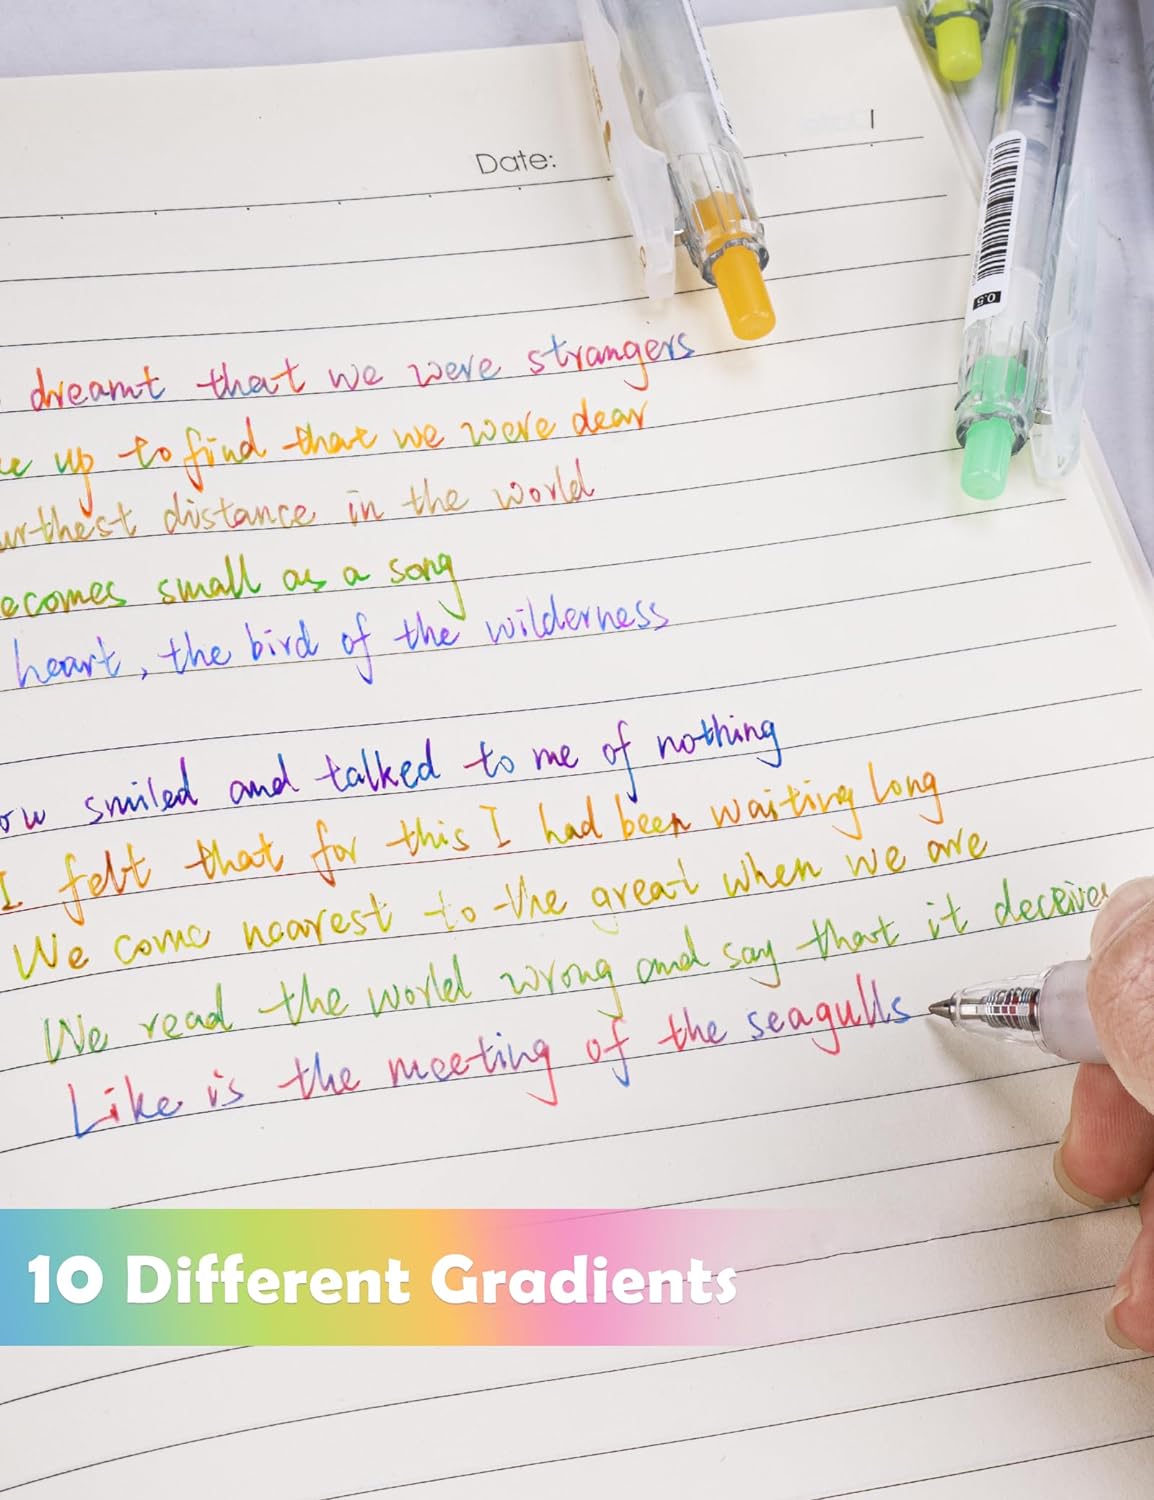 Date:
dreamt that we were strangers
up to find that we were dear
distance in the world
small as a song
heart, the bird of the wilderness
smiled and talked to me of nothing
I felt that for this I had been waiting long
We come nearest to the great when we are
We read the world wrong and say that it deceives
Like is the meeting of the seagulls
0.5
10 Different Gradients